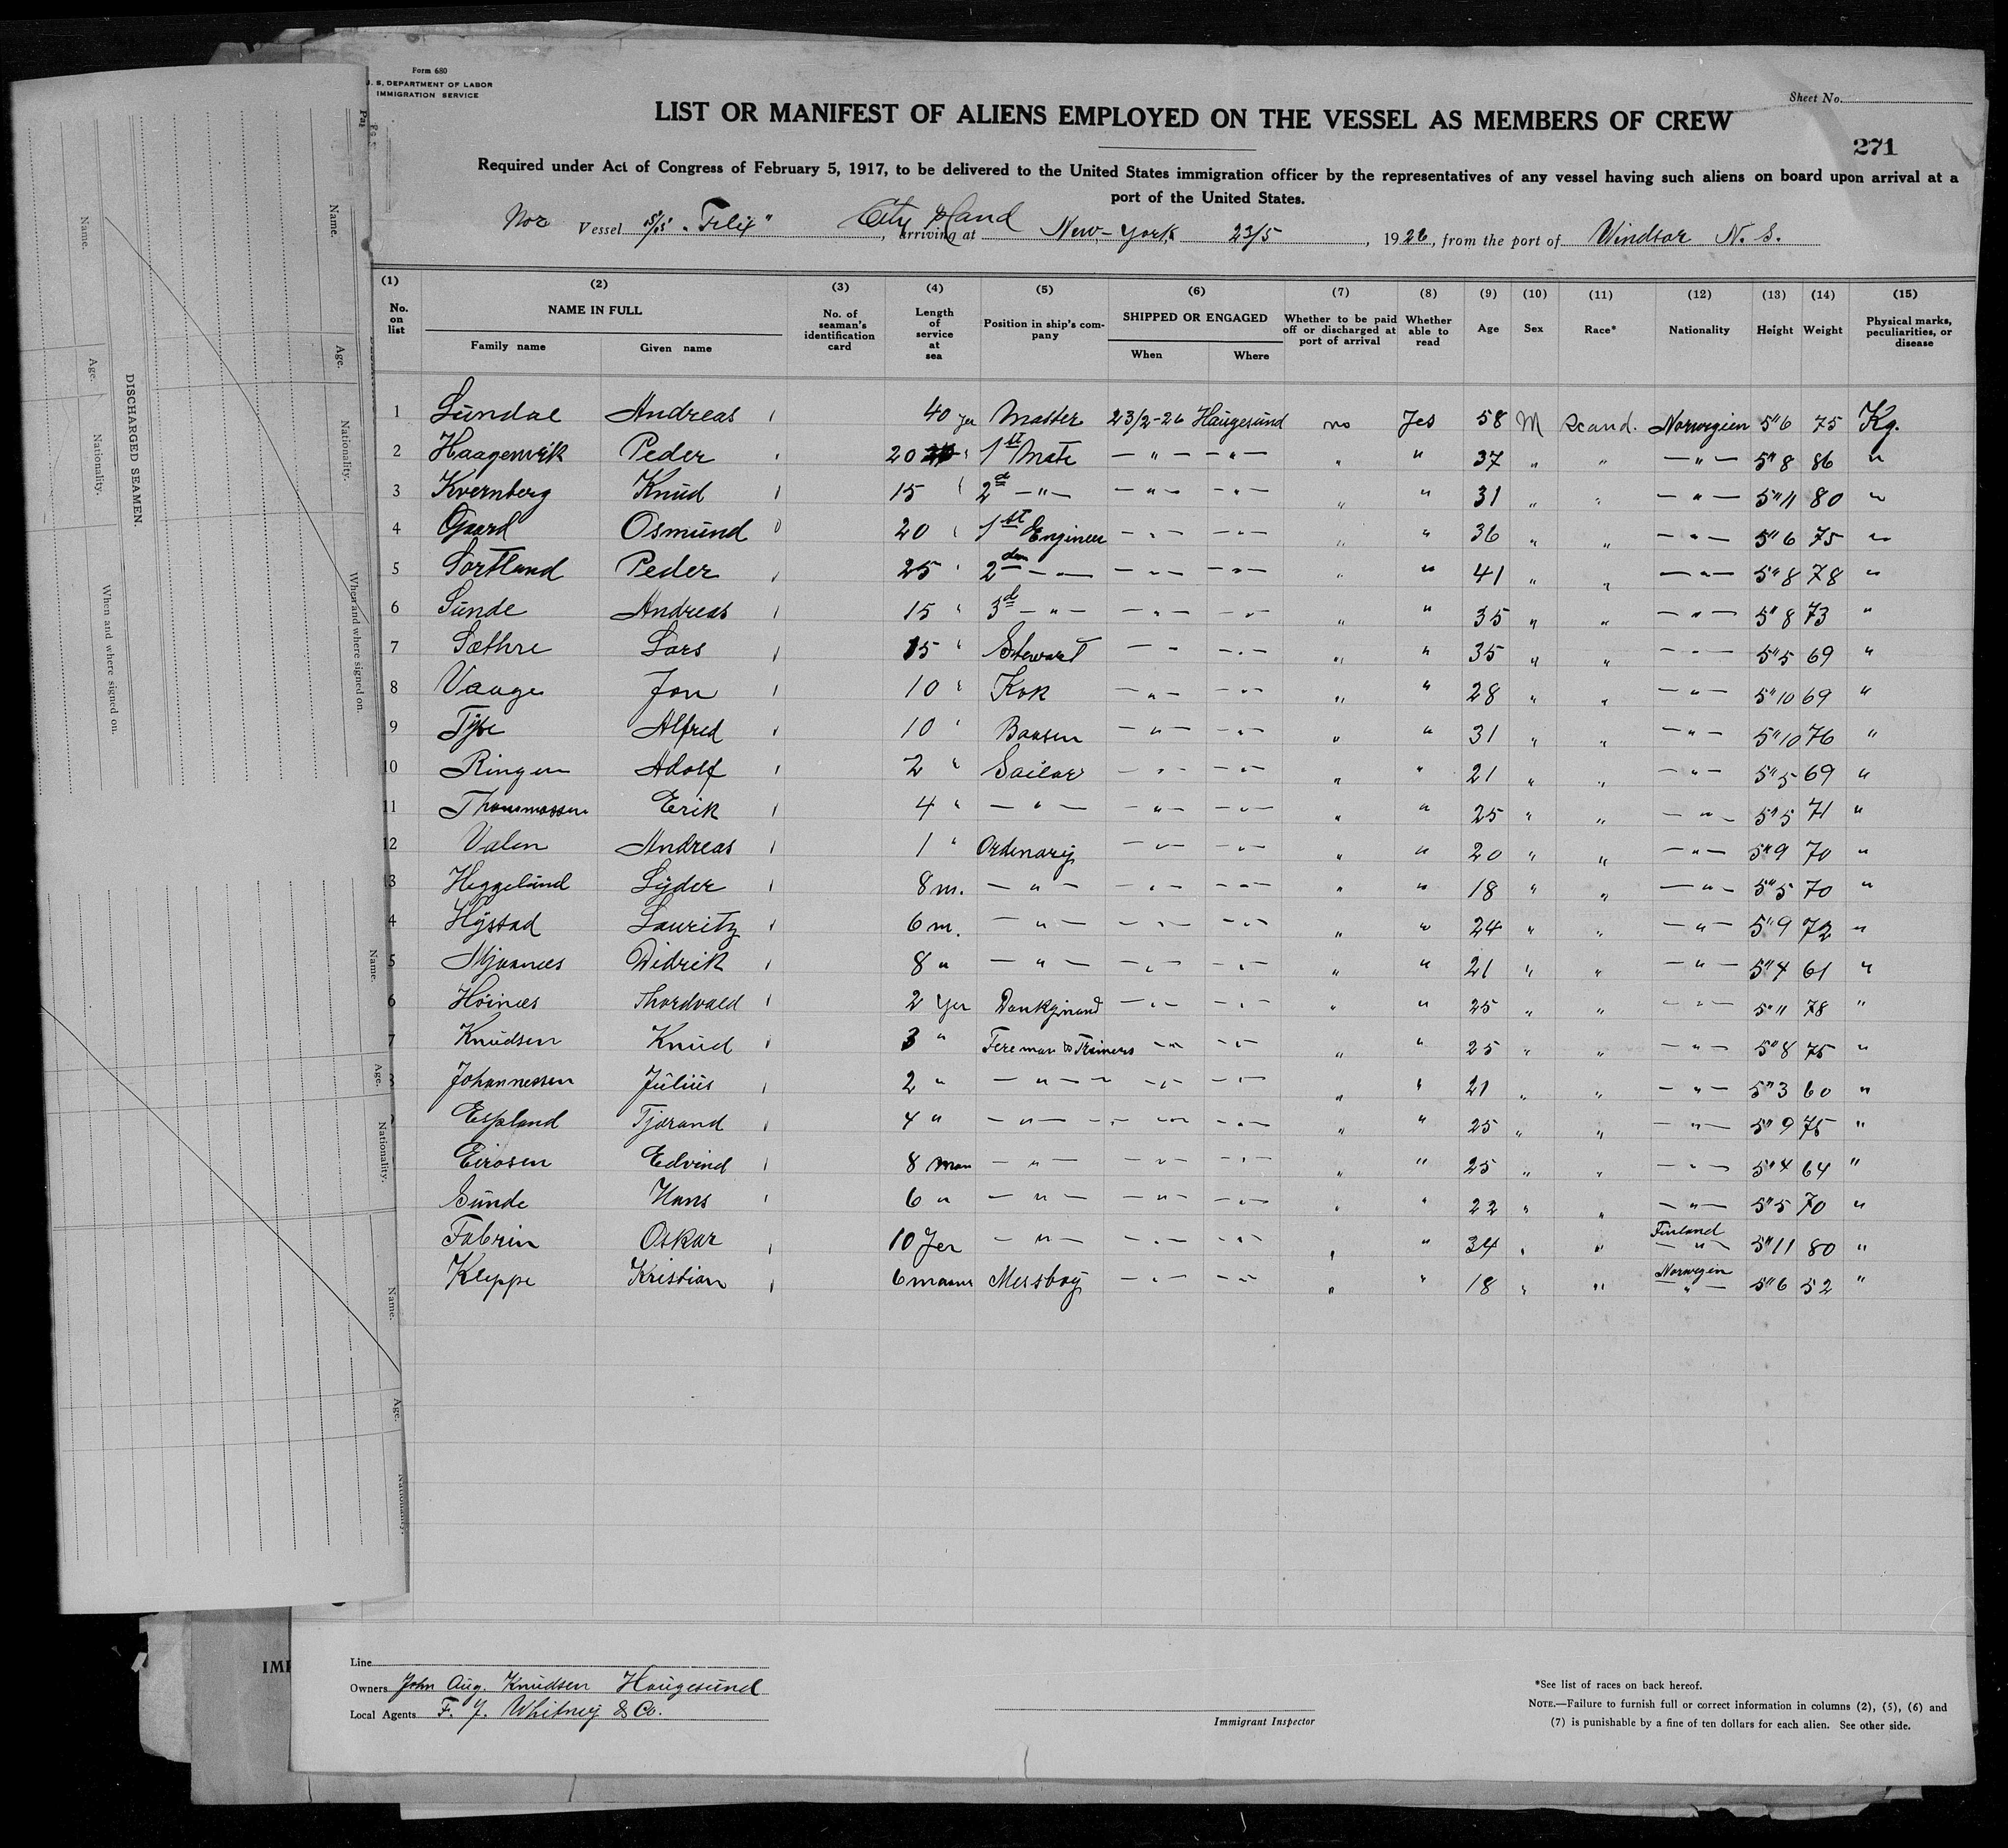 Form 680
U. S. DEPARTMENT OF LABOR
IMMIGRATION SERVICE
Sheet No.
LIST OR MANIFEST OF ALIENS EMPLOYED ON THE VESSEL AS MEMBERS OF CREW
271
Required under Act of Congress of February 5, 1917, to be delivered to the United States immigration officer by the representatives of any vessel having such aliens on board upon arrival at a
port of the United States.
Nor Vessel S/S "Felix" City Island, arriving at New-York 23/5, 1926, from the port of Windsor N. S.
(1) (2) (3) (4) (5) (6) (7) (8) (9) (10) (11) (12) (13) (14) (15)
No. on list NAME IN FULL Family name Given name No. of seaman's identification card Length of service at sea Position in ship's company SHIPPED OR ENGAGED When Where Whether to be paid off or discharged at port of arrival Whether able to read Age Sex Race* Nationality Height Weight Physical marks, peculiarities, or disease
1 Sundae Andreas 40 yer Master 23/2-26 Haugesund no Yes 58 M Scand. Norwegien 5"6 75 Kg.
2 Haagenvik Peder 20 " 1st Mate — " — — " — " " 37 " " — " — 5"8 86 "
3 Kvernberg Knud 15 " 2d — " — — " — — " — " " 31 " " — " — 5"11 80 "
4 Gaard Osmund 20 " 1st Engineer — " — — " — " " 36 " " — " — 5"6 75 "
5 Sortland Peder 25 " 2den — " — — " — — " — " " 41 " " — " — 5"8 78 "
6 Sunde Andreas 15 " 3d — " — — " — — " — " " 35 " " — " — 5"8 73 "
7 Sæthre Lars 15 " Stewart — " — — " — " " 35 " " — " — 5"5 69 "
8 Vaage Jon 10 " Kok — " — — " — " " 28 " " — " — 5"10 69 "
9 Alfred 10 " Baasen — " — — " — " " 31 " " — " — 5"10 76 "
10 Ringen Adolf 2 " Sailor — " — — " — " " 21 " " — " — 5"5 69 "
11 Thommassen Erik 4 " — " — — " — — " — " " 25 " " — " — 5"5 71 "
12 Valen Andreas 1 " Ordenary — " — — " — " " 20 " " — " — 5"9 70 "
3 Heggelund Lyder 8 m. — " — — " — — " — " " 18 " " — " — 5"5 70 "
4 Hystad Lauritz 6 m. — " — — " — — " — " " 24 " " — " — 5"9 72 "
5 Mjaanæs Didrik 8 " — " — — " — — " — " " 21 " " — " — 5"4 61 "
6 Høinæs Thordvald 2 yer Donkymand — " — — " — " " 25 " " — " — 5"11 78 "
7 Knudsen Knud 3 " Fereman & Trimers — " — — " — " " 25 " " — " — 5"8 75 "
Johannessen Julius 2 " — " — — " — — " — " " 21 " " — " — 5"3 60 "
Espland Tjørand 4 " — " — — " — — " — " " 25 " " — " — 5"9 75 "
Eirosen Edvind 8 man — " — — " — — " — " " 25 " " — " — 5"4 64 "
Sunde Hans 6 " — " — — " — — " — " " 22 " " — " — 5"5 70 "
Fabrin Oskar 10 Yer — " — — " — — " — " " 34 " " Finland — " — 5"11 80 "
Kleppe Kristian 6 Messboy — " — — " — " " 18 " " Norwegin — " — 5"6 52 "
Line
Owners John Aug. Knudsen Haugesund
Local Agents F. J. Whitney & Co.
Immigrant Inspector
*See list of races on back hereof.
NOTE.—Failure to furnish full or correct information in columns (2), (5), (6) and
(7) is punishable by a fine of ten dollars for each alien. See other side.
DISCHARGED SEAMEN.
Name. Age. Nationality. When and where signed on.
Name. Age. Nationality. When and where signed on.
Name. Age. Nationality.
Name. Age. Nationality.